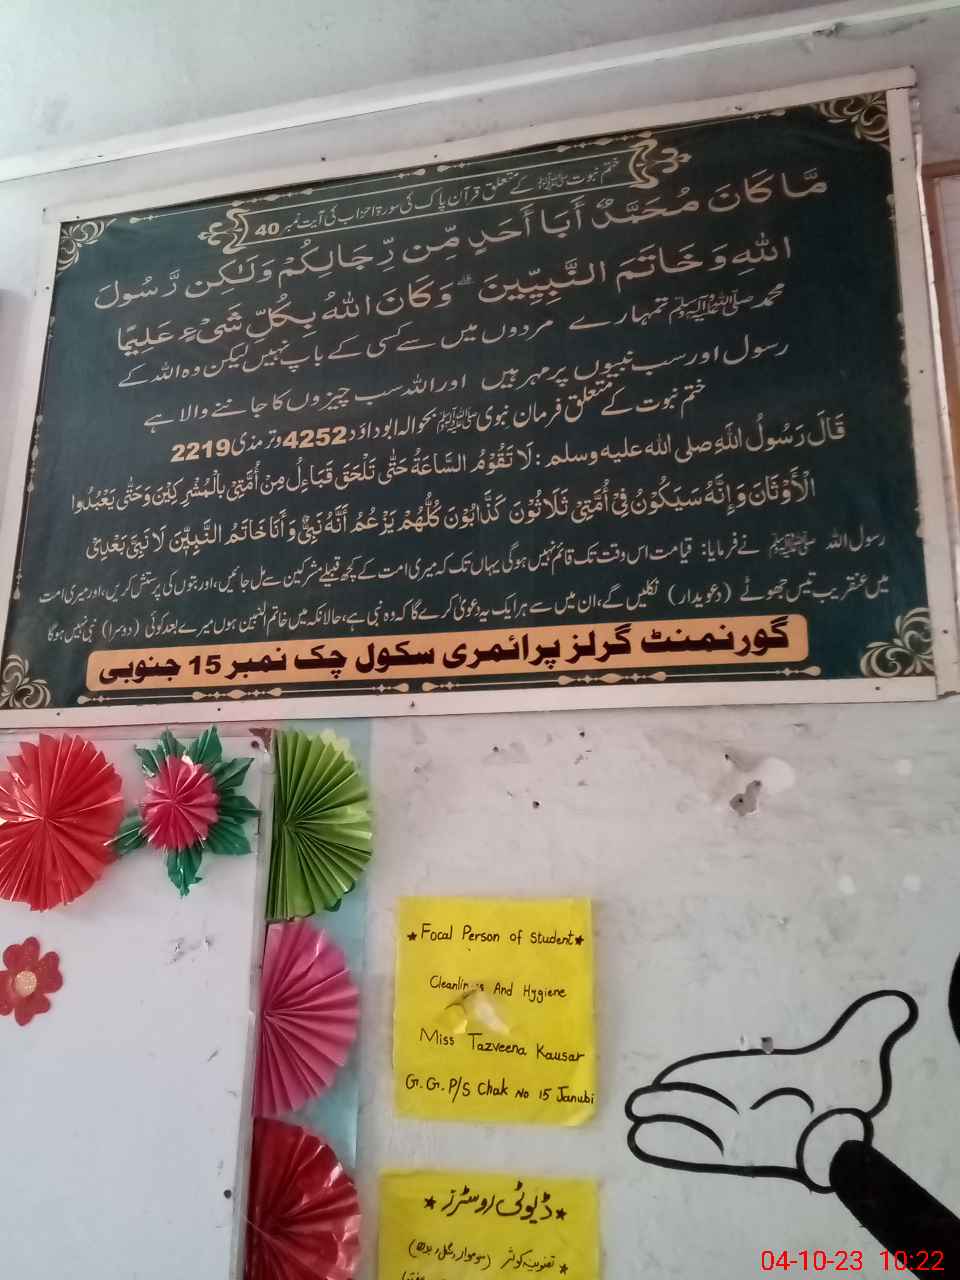 ختم نبوت ﷺ کے متعلق قرآن پاک کی سورۃ احزاب کی آیت نمبر 40
مَّا كَانَ مُحَمَّدٌ أَبَا أَحَدٍ مِّن رِّجَالِكُمْ وَلَٰكِن رَّسُولَ
اللهِ وَخَاتَمَ النَّبِيِّينَ ۗ وَكَانَ اللهُ بِكُلِّ شَيْءٍ عَلِيمًا
محمد صلی اللہ علیہ وآلہ وسلم تمہارے مردوں میں سے کسی کے باپ نہیں لیکن وہ اللہ کے
رسول اور سب نبیوں پر مہر ہیں اور اللہ سب چیزوں کا جاننے والا ہے
ختم نبوت کے متعلق فرمان نبوی ﷺ بحوالہ ابوداؤد 4252 و ترمذی 2219
قَالَ رَسُولُ اللهِ صلى الله عليه وسلم : لَا تَقُوْمُ السَّاعَةُ حَتَّى تَلْحَقَ قَبَاءِلُ مِنْ أُمَّتِيْ بِالْمُشْرِكِيْنَ وَحَتَّى يَعْبُدُوا
الْأَوْثَانَ وَإِنَّهُ سَيَكُوْنُ فِيْ أُمَّتِيْ ثَلَاثُوْنَ كَذَّابُوْنَ كُلُّهُمْ يَزْعُمُ أَنَّهُ نَبِيٌّ وَأَنَا خَاتَمُ النَّبِيِّيْنَ لَا نَبِيَّ بَعْدِيْ
رسول اللہ ﷺ نے فرمایا: قیامت اس وقت تک قائم نہیں ہوگی یہاں تک کہ میری امت کے کچھ قبیلے مشرکین سے مل جائیں، اور بتوں کی پرستش کریں، اور میری امت
میں عنقریب تیس جھوٹے (دعویدار) نکلیں گے، ان میں سے ہر ایک یہ دعویٰ کرے گا کہ وہ نبی ہے، حالانکہ میں خاتم النبین ہوں میرے بعد کوئی (دوسرا) نبی نہیں ہوگا
گورنمنٹ گرلز پرائمری سکول چک نمبر 15 جنوبی
★ Focal Person of Student ★
And Hygiene
Miss Tazveena Kausar
G.G.P/S Chak No 15 Janubi
★ ڈیوٹی روسٹرز ★
★ تضوینہ کوثر (سوموار، منگل، بدھ)
04-10-23 10:22